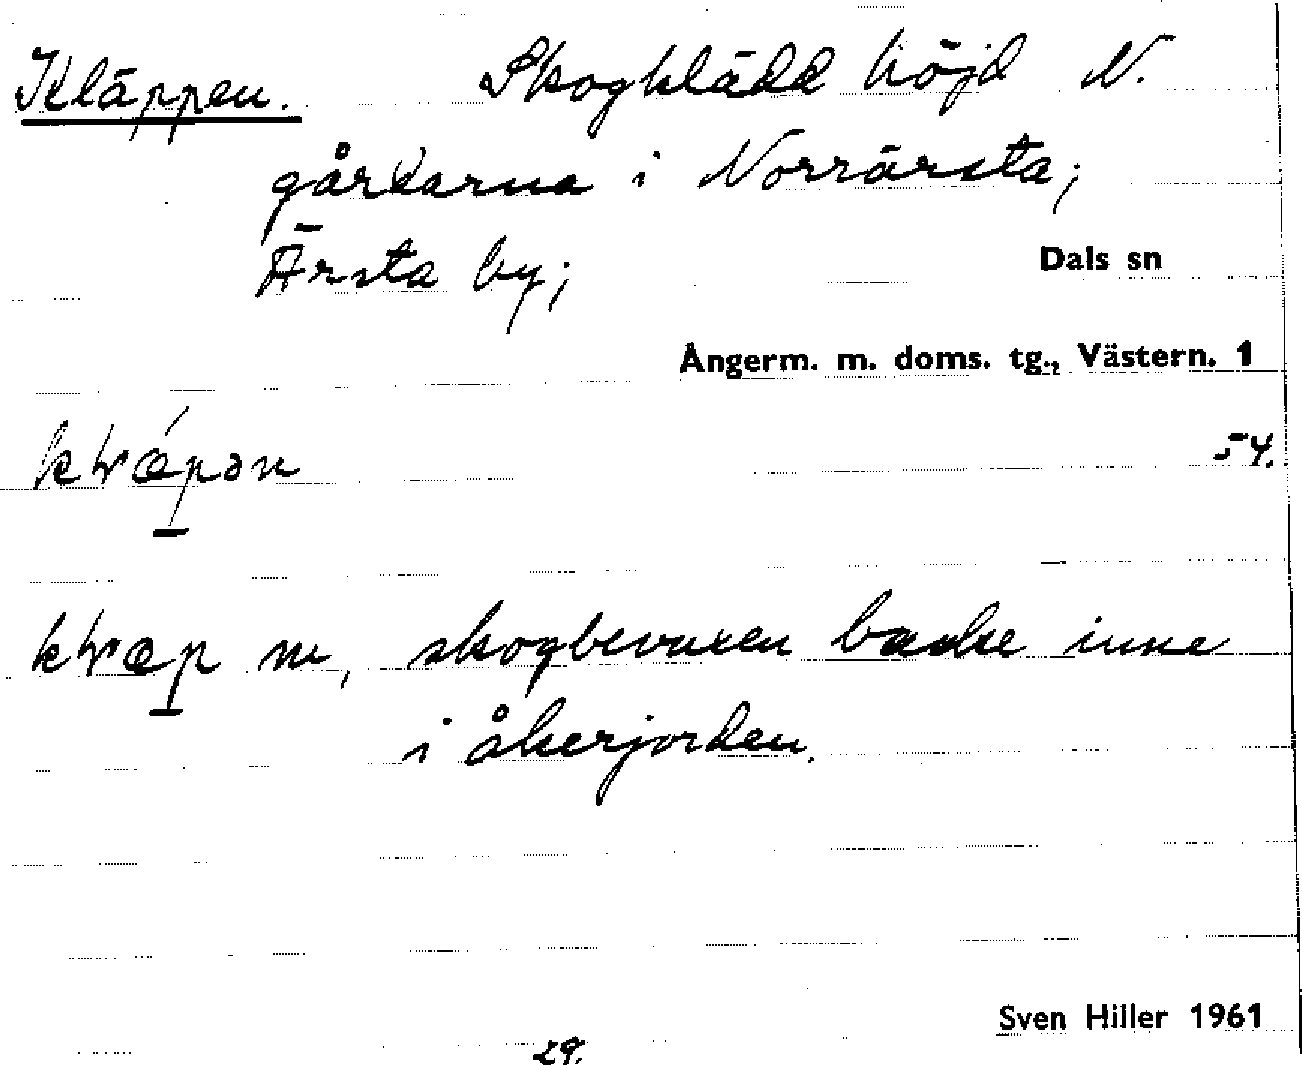 Kläppen. Skogklädd höjd N.
gårdarna i Norrärsta;
Ärsta by;
Dals sn
Ångerm. m. doms. tg., Västern. 1
54.
m, skogbevuxen backe inne
i åkerjorden.
Sven Hiller 1961
29.